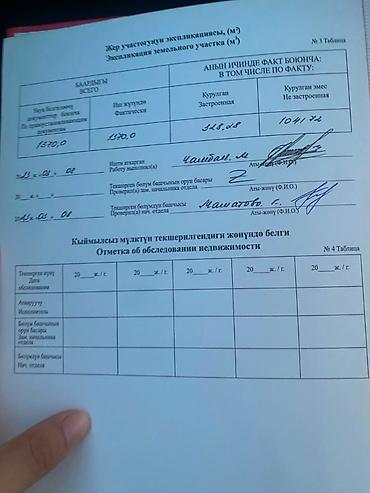 Жер участогунун экспликациясы, (м²)
Экспликация земельного участка (м²)
№ 3 Таблица
БААРДЫГЫ
ВСЕГО
АНЫН ИЧИНДЕ ФАКТ БОЮНЧА:
В ТОМ ЧИСЛЕ ПО ФАКТУ:
Укук белгилөөчү документтер боюнча
По правоустанавливающим документам
Иш жүзүндө
Фактически
Курулган
Застроенная
Курулган эмес
Не застроенная
1370,0
1370,0
328,28
1041,72
2023 ж. 03 - 08
Ишти аткарган
Работу выполнил(а)
Аты-жөнү (Ф.И.О.)
20 ж.
Текшерген бөлүм башчынын орун басары
Проверил(а) зам. начальника отдела
Аты-жөнү (Ф.И.О.)
2023 ж. 03 - 08
Текшерген бөлүмдүн башчысы
Проверил(а) нач. отдела
Аты-жөнү (Ф.И.О.)
Кыймылсыз мүлктүн текшерилгендиги жөнүндө белги
Отметка об обследовании недвижимости
№ 4 Таблица
Текшерүү күнү
Дата обследования
20 ж. / г.
20 ж. / г.
20 ж. / г.
20 ж. / г.
20 ж. / г.
Аткаруучу
Исполнитель
Бөлүм башчынын орун басары
Зам. начальника отдела
Бөлүмдүн башчысы
Нач. отдела